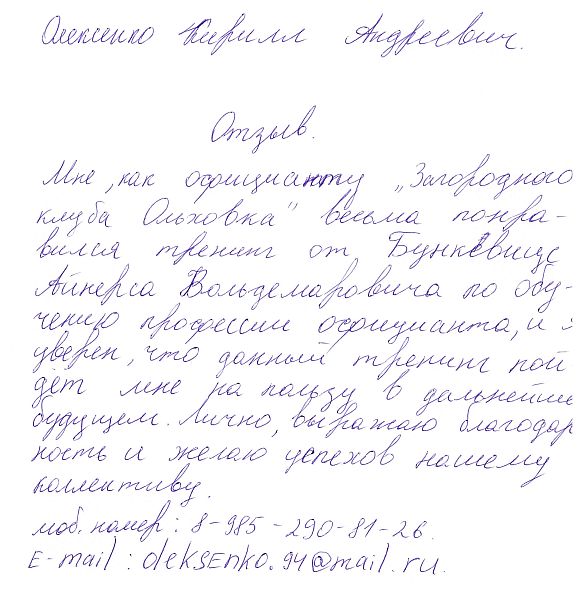 Олексенко Кирилл Андреевич.
Отзыв.
Мне, как официанту „Загородного
клуба Ольховка" весьма понра-
вился тренинг от Бункевица
Айнерса Вольдемаровича по обу-
чению профессии официанта, и я
уверен, что данный тренинг пой
дёт мне на пользу в дальнейшем
будущем. Лично, выражаю благодар
ность и желаю успехов нашему
коллективу.
моб. номер: 8-985-290-81-26.
E-mail: oleksenko.94@mail.ru.